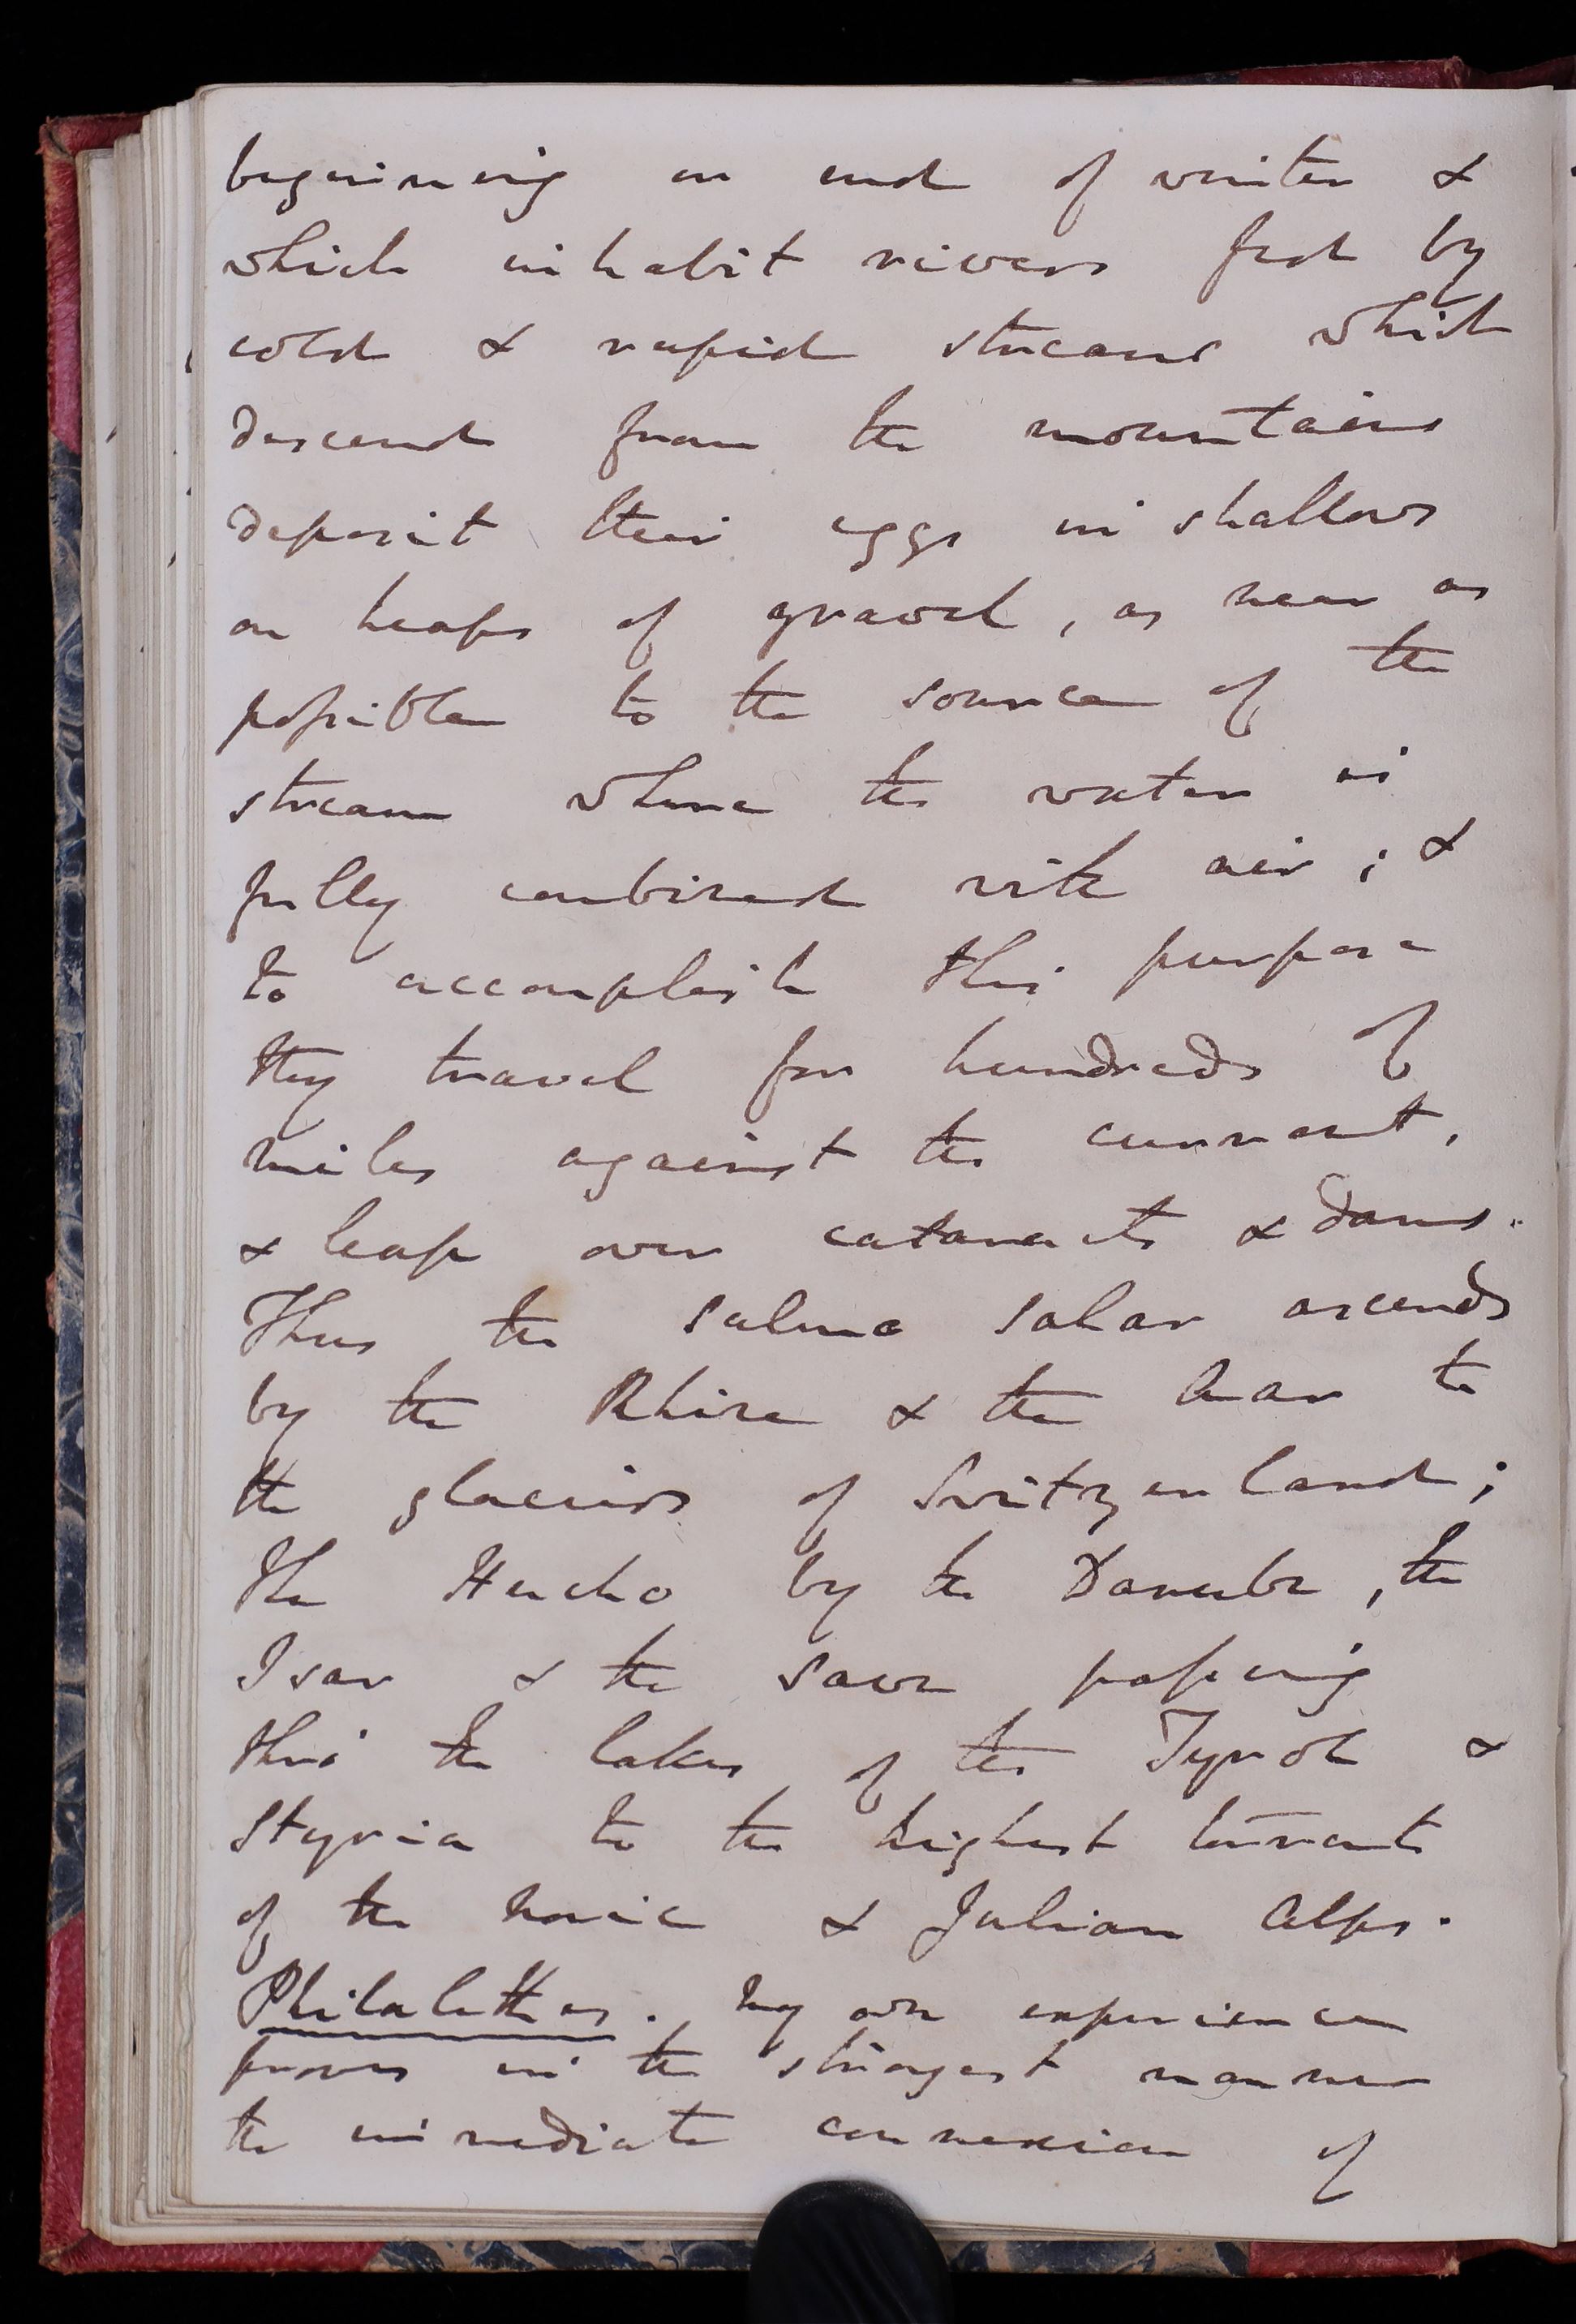 beginning or end of winter &
which inhabit rivers fed by
cold & rapid streams which
descend from the mountains
deposit their eggs in shallows
on heaps of gravel, as near as
possible to the source of the
stream where the water is
fully combined with air; &
to accomplish this purpose
they travel for hundreds of
miles against the current,
& leap over cataracts & dams.
Thus the salmo salar ascends
by the Rhine & the Aar to
the glaciers of Switzerland;
the Hucho by the Danube, the
Isar & the Save passing
thro' the lakes of the Tyrol &
Styria to the highest torrents
of the Noric & Julian Alps.
Philalethes. My own experience
proves in the strongest manner
the immediate connexion of